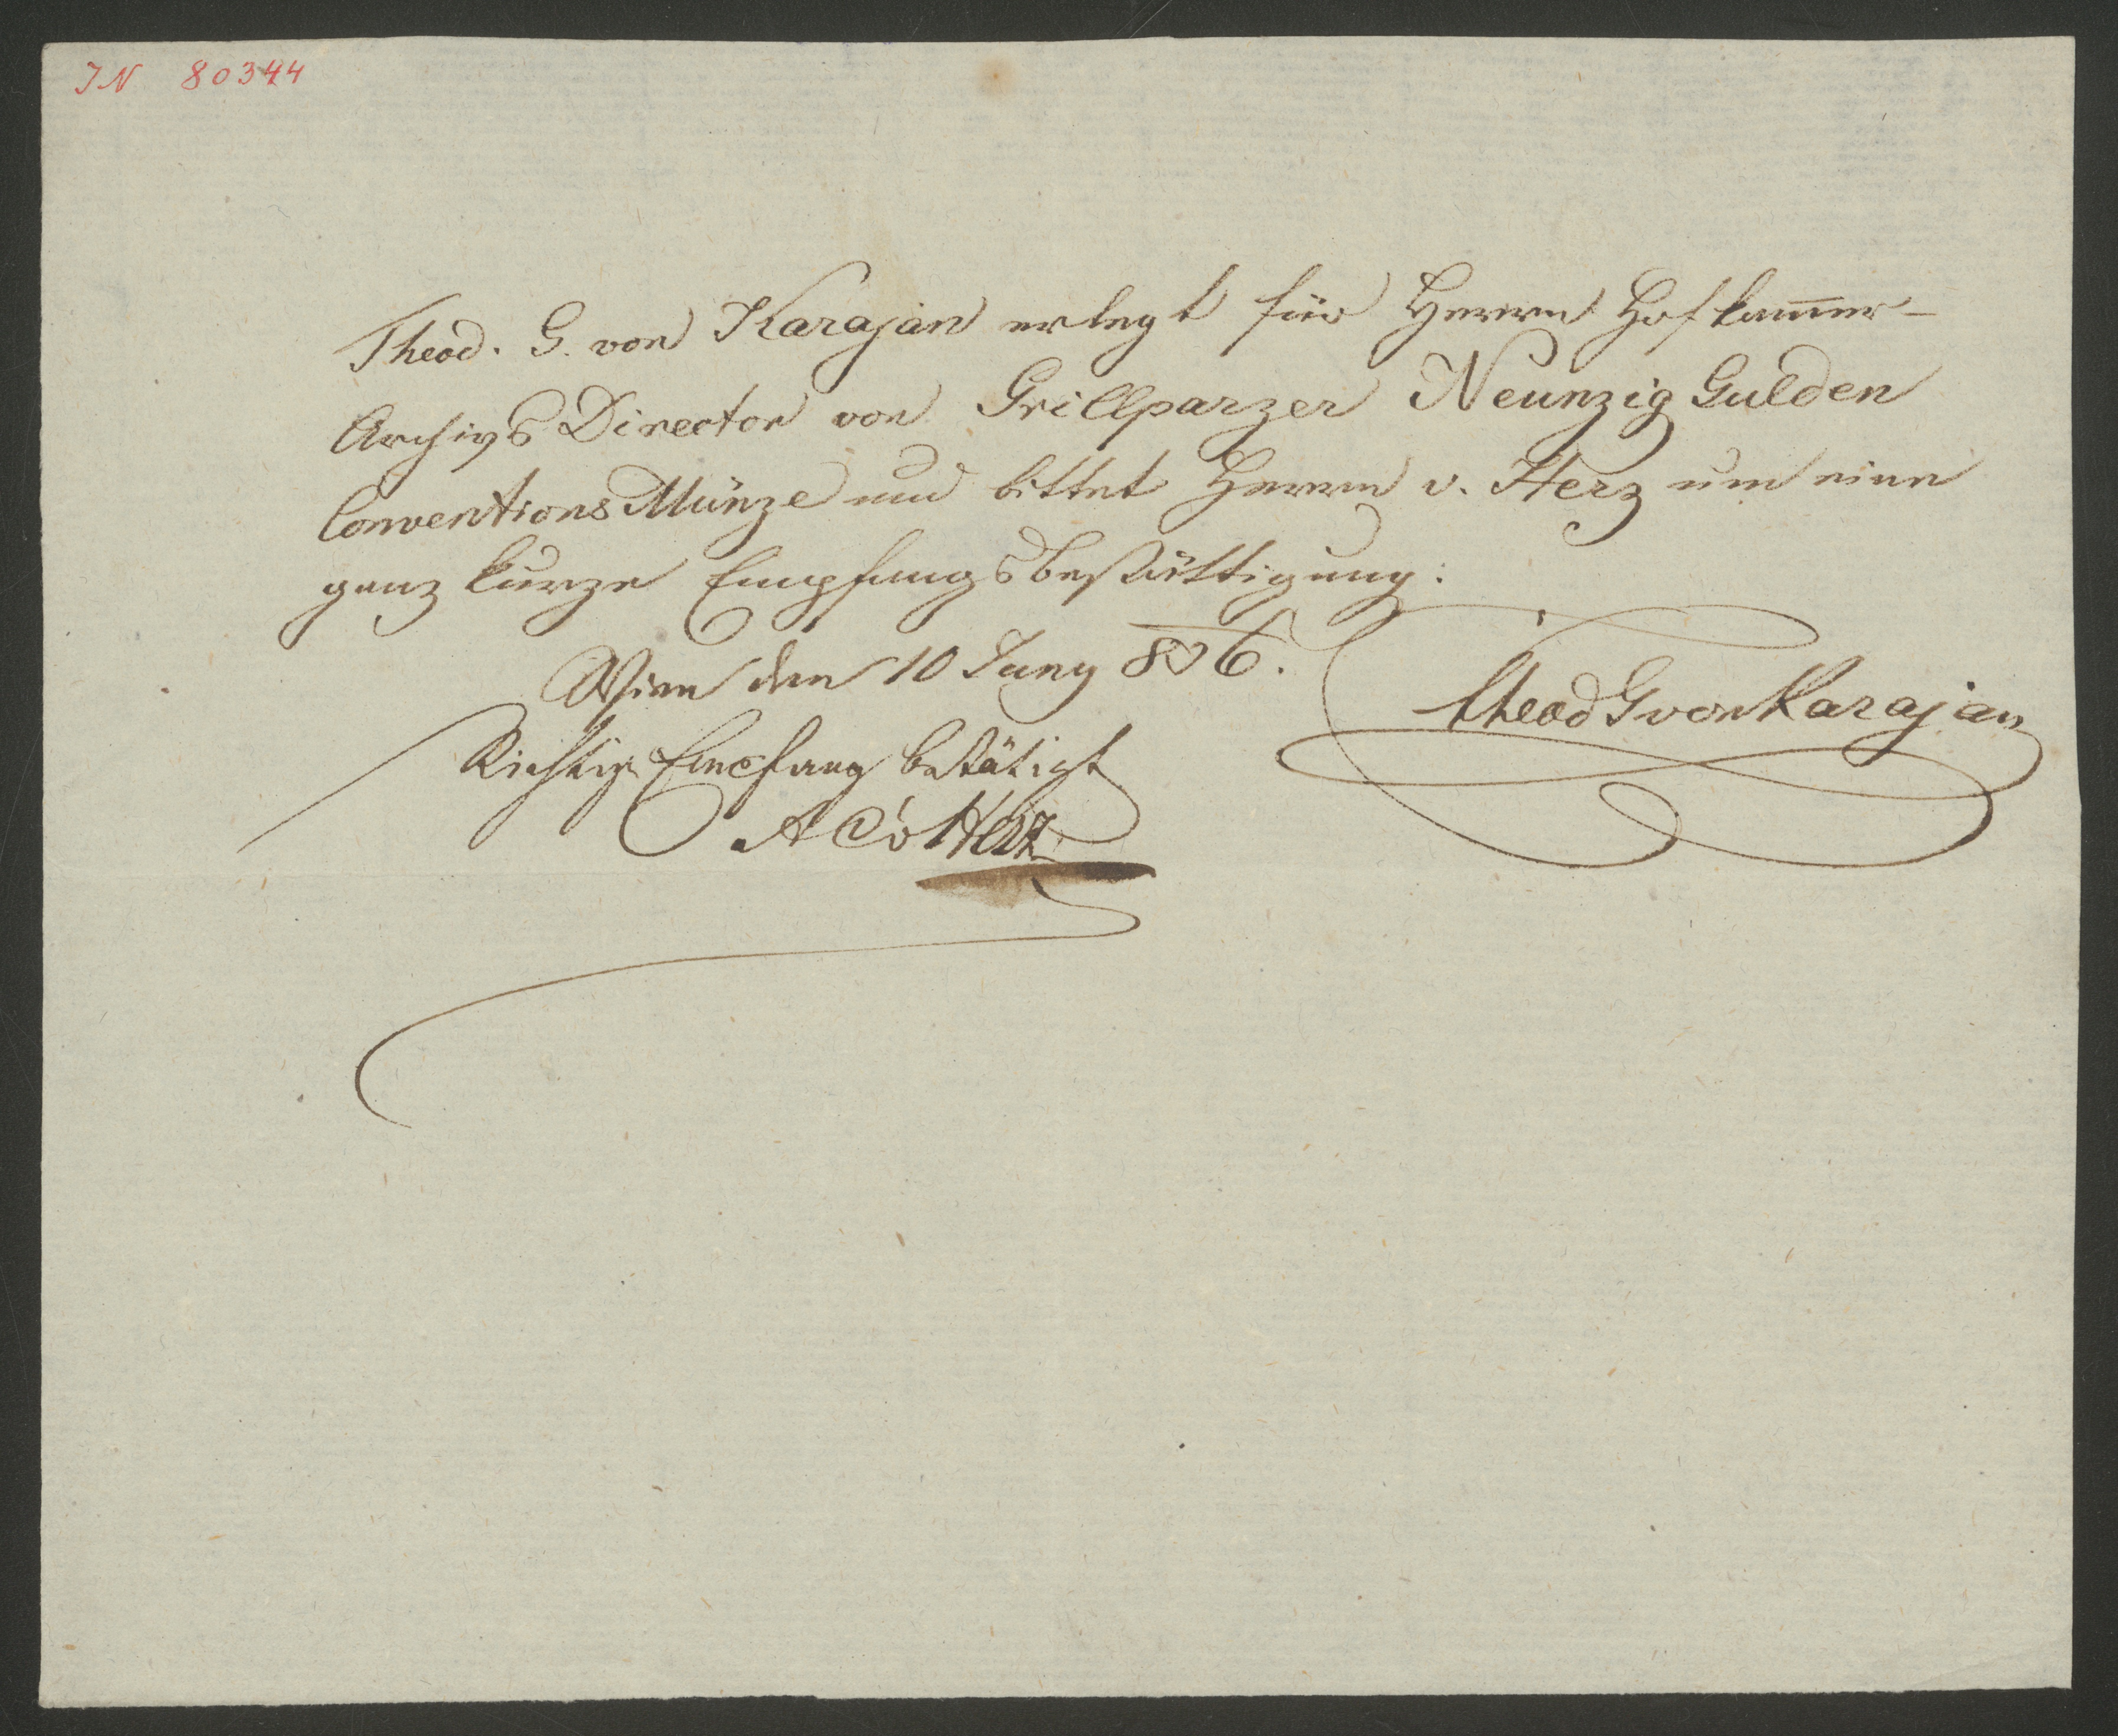 IN 80344
Theod. G. von Karajan erlegt für Herrn Hofkam̄er-
Archivs Director von Grillparzer Neunzig Gulden
Conventions Münze und bittet Herrn v. Herz um eine
ganz kurze Empfangsbestättigung:
Wien den 10 Juny 836.
Theod G von Karajan
Richtig Empfang bestätigt
A C v Herz